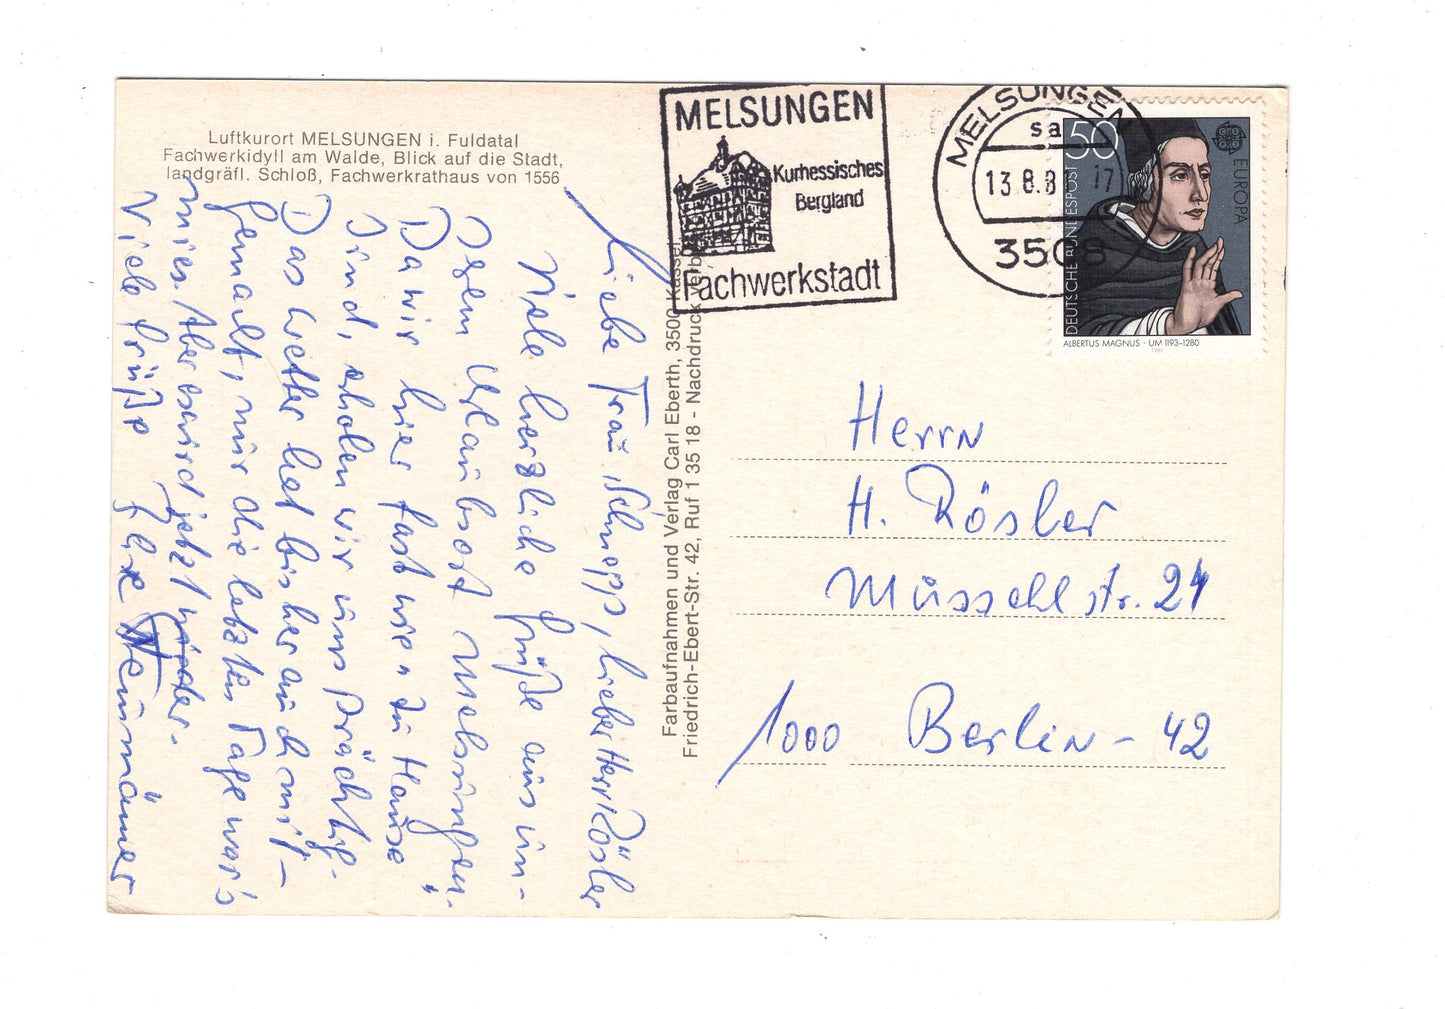 Luftkurort MELSUNGEN i. Fuldatal
Fachwerkidyll am Walde, Blick auf die Stadt,
landgräfl. Schloß, Fachwerkrathaus von 1556
Liebe Frau Schnepp, lieber Herr Rösler
Viele herzliche Grüße aus un-
serm Urlaubsort Melsungen.
Da wir hier fast wie „zu Hause"
sind, erholen wir uns prächtig.
Das Wetter hat bisher auch mit-
gemacht, nur die letzten Tage war's
mies. Aber es wird jetzt wieder.
Viele Grüße Ihre
Farbaufnahmen und Verlag Carl Eberth, 3500 Kassel
Friedrich-Ebert-Str. 42, Ruf 1 35 18 - Nachdruck verb
MELSUNGEN
Kurhessisches
Bergland
Fachwerkstadt
MELSUNGE
sa
13.8.8 17
3508
50
EUROPA
DEUTSCHE BUNDESPOST
ALBERTUS MAGNUS · UM 1193-1280
Herrn
H. Rösler
Müssehlstr. 24
1000 Berlin - 42